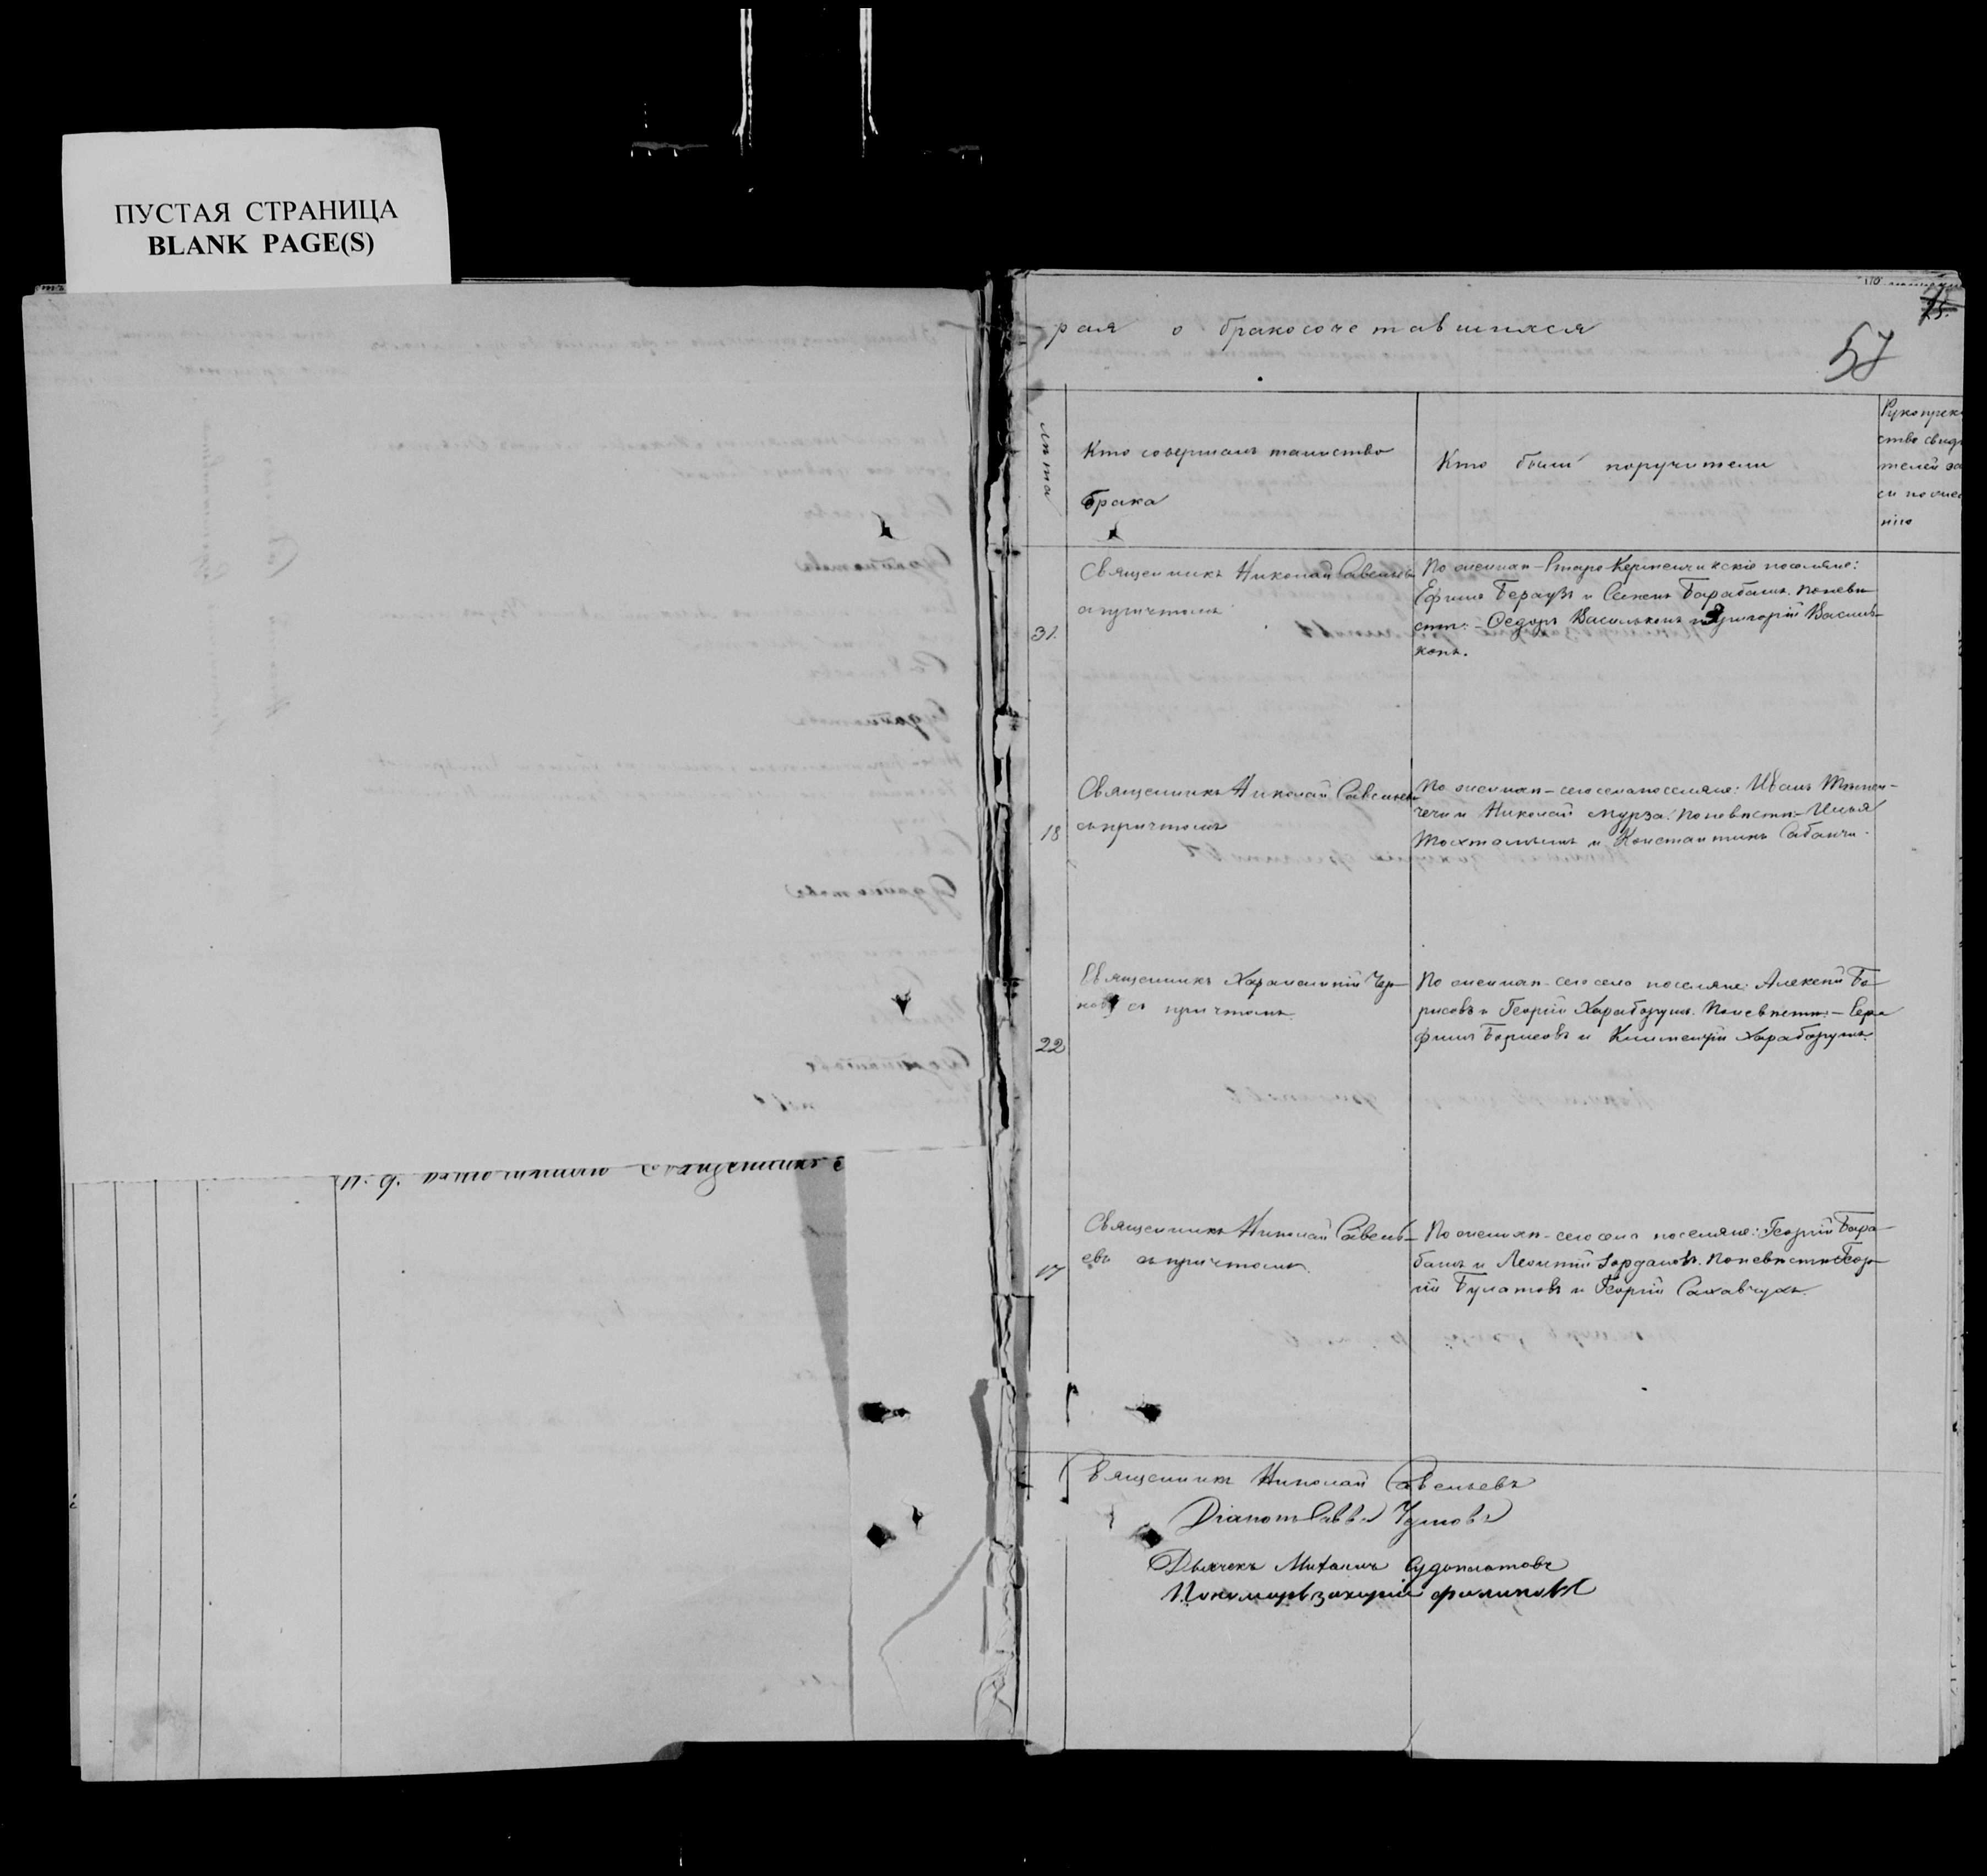 ПУСТАЯ СТРАНИЦА
BLANK PAGE(S)
75.
57
рая о бракосочетавшихся
лѣта
Кто совершалъ таинство
брака
Кто были поручители
Рукоприк
ство свидѣ
телей за
си по жела
нію
31.
Священникъ Николай Савельевъ
съ причтомъ
По женихѣ – Старо Керменчикскіе поселяне:
Ефимъ Бераузъ и Семенъ Барабашъ. По невѣ
стѣ: – Ѳедоръ Василькенъ и Григорій Василь
кенъ.
18
Священникъ Николай Савельевъ
съ причтомъ
По женихѣ – сего села поселяне: Иванъ
и Николай Мурза. По невѣстѣ – Илья
Тохтамышъ и Константинъ Сабанчи.
22
Священникъ Харлампій Чер–
новъ съ причтомъ.
По женихѣ – сего села поселяне: Алексѣй Бо
рисовъ и Георгій Хараборушъ. По невѣстѣ: – Сера
фимъ Борисовъ и Климентій Хараборушъ.
17
Священникъ Николай Савель–
евъ съ причтомъ.
По женихѣ – сего села поселяне: Георгій Бара–
башъ и Леонтій Іордановъ. По невѣстѣ Геор–
гій Булатовъ и Георгій
Священникъ Николай Савельевъ
Діаконъ Савва Чумовъ
Дьячекъ Михаилъ Судоплатовъ
Пономаръ Захарій Филиповъ